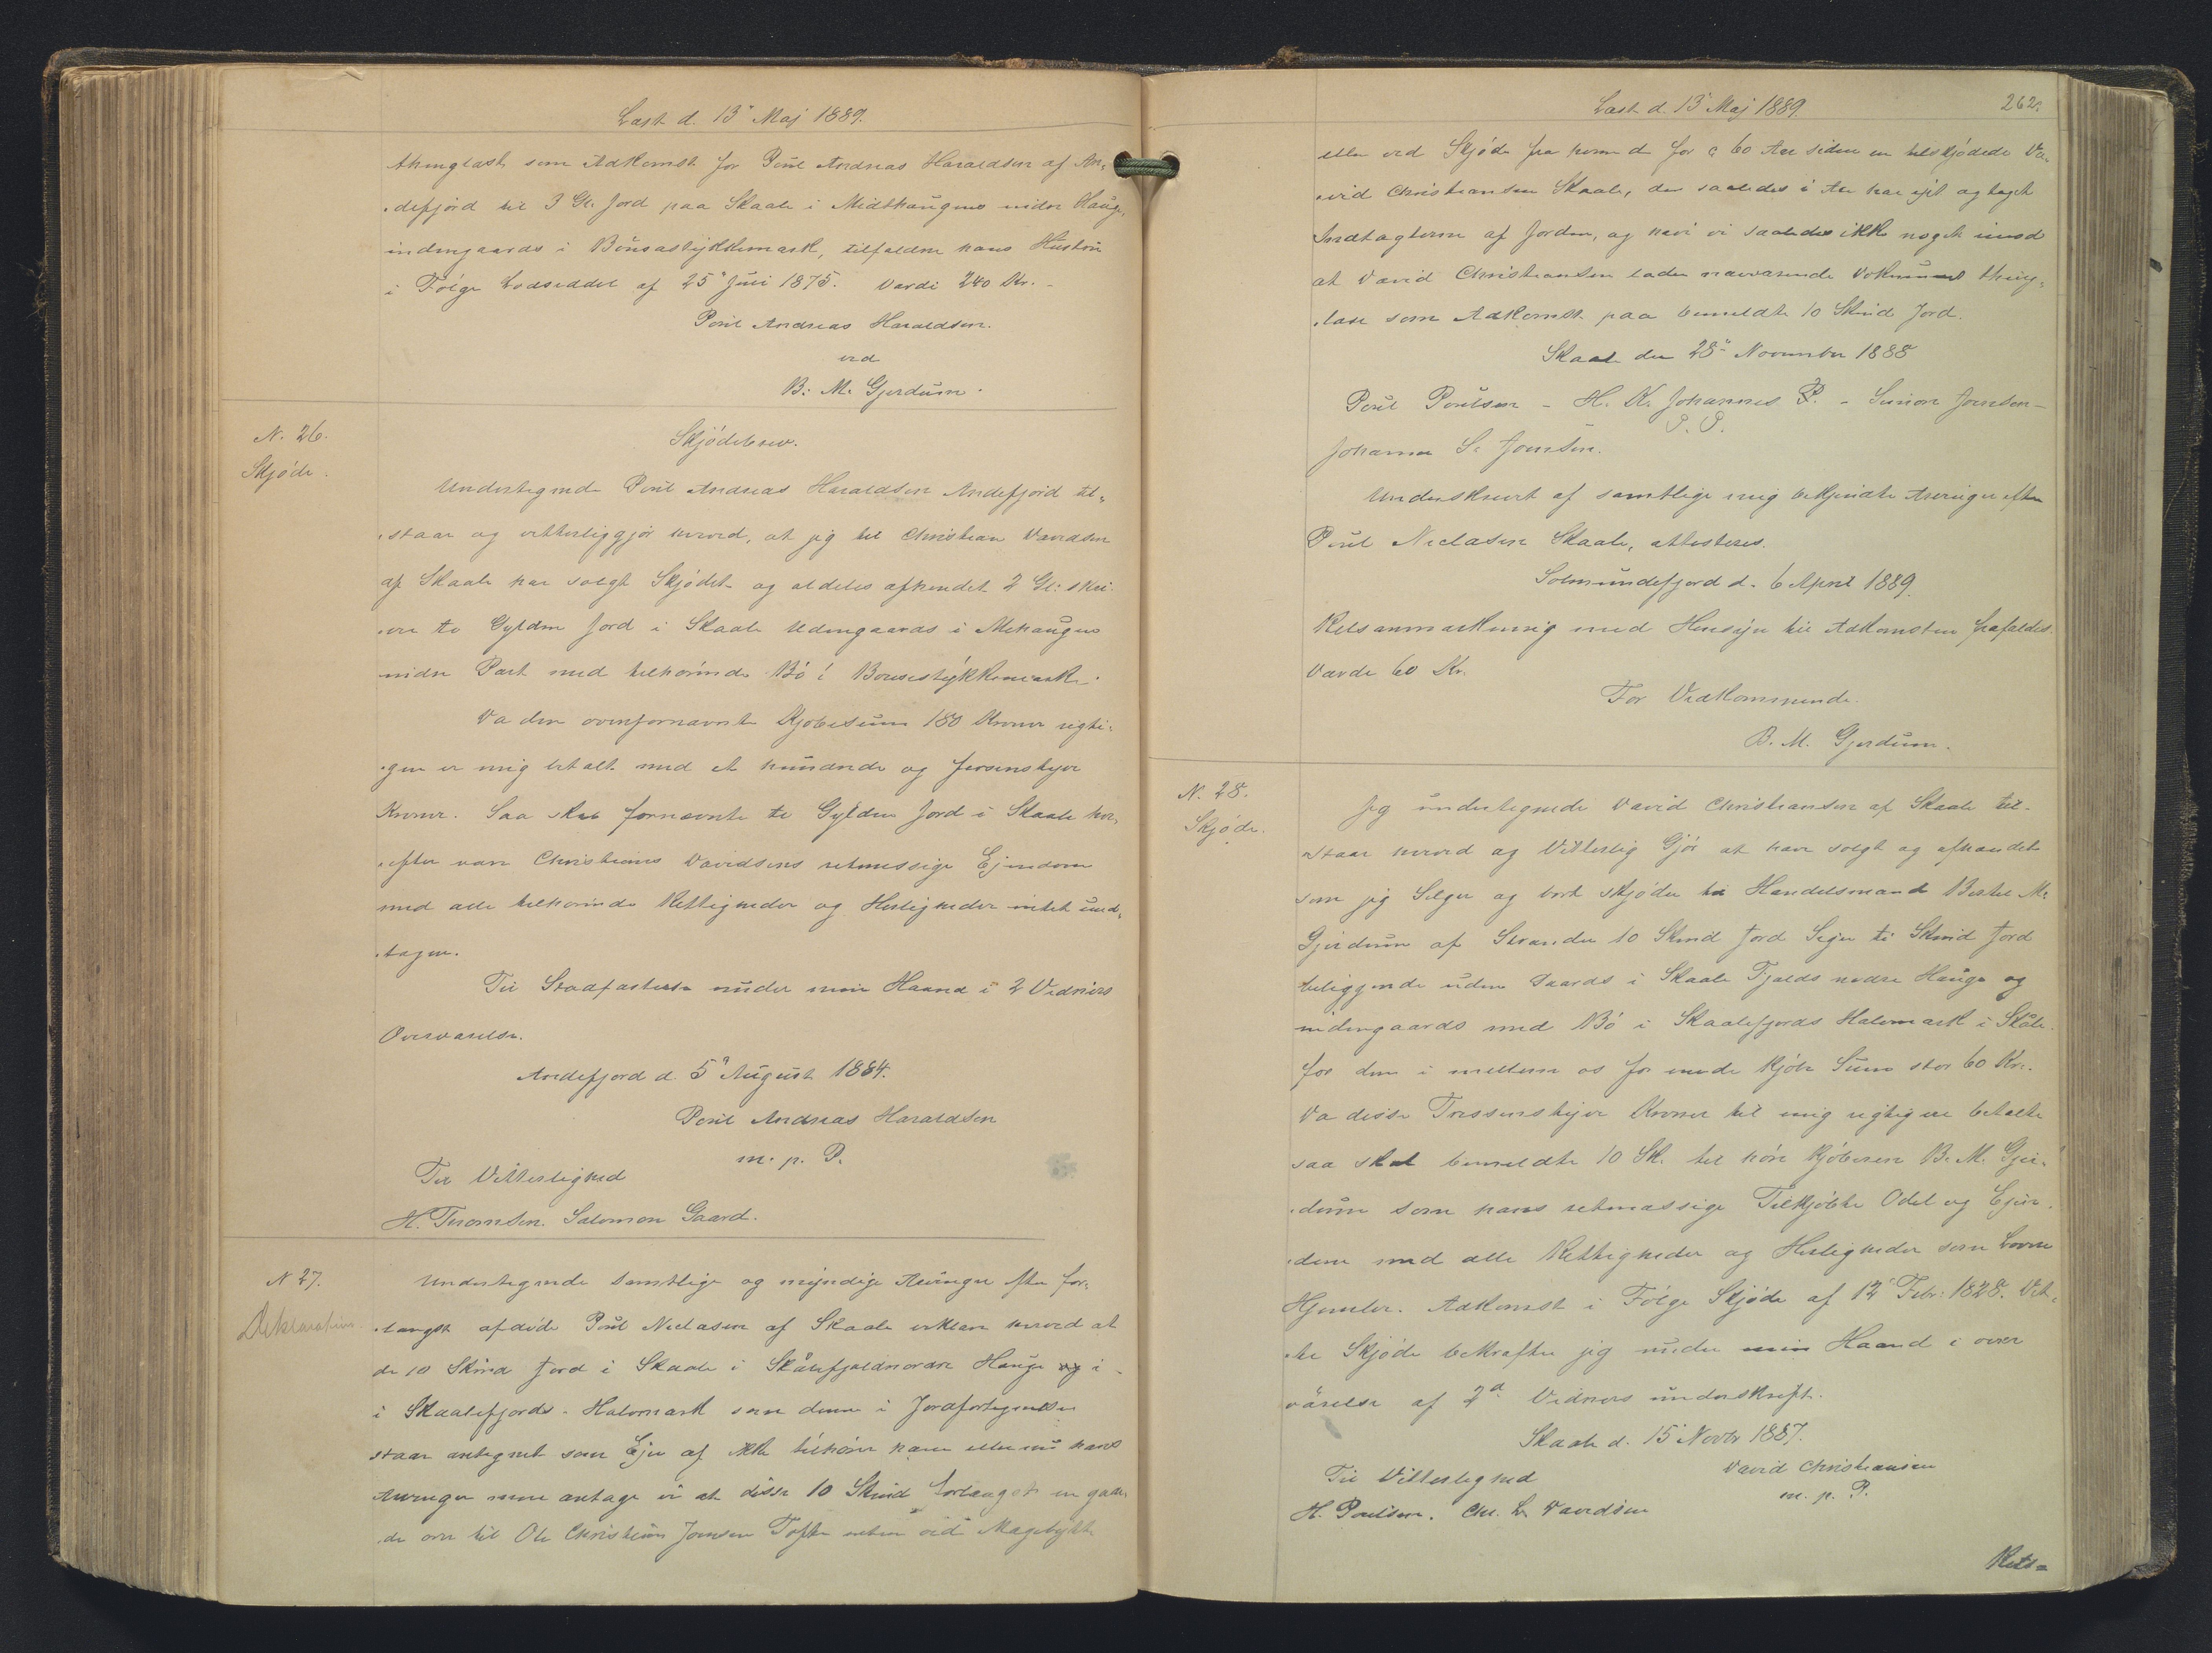 Læst d. 13' Maj 1889.
thinglæst som Adkomst for Poul Andreas Haraldsen af An„
„defjord til 3 Gl. Jord paa Skaale i Midthaugens nidre Hauge,
indengaards i Bönsastykkemark, tilfalden hans Hustru
i Fölge Lodseddel af 25' Juni 1875. Værdi 240 Kr. –
Poul Andreas Haraldsen.
ved
B: M. Gjerdum.
N. 26.
Skjöde.
Skjödebrev.
Undertegnede Poul Andreas Haraldsen Andefjord til„
„staar og vitterliggjör herved, at jeg til Christian Davidsen
af Skaale har solgt Skjödet og aldeles afhendet 2 Gl: skri
„ver to Gylden Jord i Skaale Udengaards i Mehaugens
nidre Part med tilhörende Bö i Bonsastykkemark.
Da den ovenfornævnte Kjöbesum 180 Kroner rigti„
„gen er mig betalt med et hundrede og firsenstyve
Kroner. Saa skal fornævnte to Gylden Jord i Skaale her„
„efter være Christians Davidsens retmessige Ejendom
med alle tilhörende Rettigheder og Herligheder intet und„
„tagen.
Til Stadfæstelse under min Haand i 2 Vidners
Overværelse.
Andefjord d. 5' August 1884.
Poul Andreas Haraldsen
m. p. P.
Til Vitterlighed
H. Thomsen. Salomon Gaard.
N 27.
Deklaration.
Undertegnede samtlige og myndige Arvinger efter for„
„længst afdöde Poul Niclasen af Skaale erklære herved at
de 10 Skind Jord i Skaale i Skålefjeldnordre Hauge og i
i Skaalefjords-Halvmark som denne i Jordfortegnelsen
staar antegnet som Ejer af ikke tilhörer ham eller nu hans
Arvinger men antage vi at disse 10 Skind forlængst er gaae„
„de over til Ole Christian Joensen Toften enten ved Magebytte
Læst d. 13' Maj 1889.
262.
eller ved Skjöde fra hvem de for c 60 Aar siden er tilskjödede Da„
„vid Christiansen Skaale, der saaledes i Aar har ejet og taget
Indtægterne af Jorden, og have vi saaledes ikke noget imod
at David Christiansen lader nærværende Dokument thing„
„læse som Adkomst paa bemeldte 10 Skind Jord.
Skaale den 28' November 1888
Poul Poulsen – H. K. Johannes P. – Simon Joensen –
P. P.
Johanna S. Joensen.
Underskrevet af samtlige mig bekjendte Arvinger efter
Poul Niclasen Skaale, attesteres.
Solmundefjord d. 6 April 1889.
Retsanmærkning med Hensyn til Adkomsten frafaldes.
Værdi 60 Kr.
For Vedkommende.
B. M. Gjerdum.
N. 28.
Skjöde.
Jeg undertegnede David Christiansen af Skaale til„
„staar herved og Vitterlig Gjör at have solgt og afhændet
som jeg Selger og bort skjöder til Handelsmand Bertel M.
Gjerdum af Strander 10 Skind Jord Siger ti Skind Jord
beliggende uden Gaards i Skaale Fjelds nedre Hauge og
indengaards med Bö i Skaalefjords Halvmark i Skåle.
for den i mellem os for enede Kjöbe Sum stor 60 Kr.
Da disse Tressenstyve Kroner til mig rigtig ere betalte
saa skal bemeldte 10 Sk. til höre Kjöberen B. M. Gjer„
„dum som hans retmæssige Tilkjöbte Odel og Ejen„
„dom med alle Rettigheder og Herligheder som Loven
Hjemler. Adkomst i Fölge Skjöde af 12' Febr: 1828. Det„
„te Skjöde bekræfter jeg under min Haand i over
værelse af 2d Vidners underskrift.
Skaale d. 15' Novbr 1887.
David Christiansen
m. p. P.
Til Vitterlighed
H. Poulsen. Chr. L. Davidsen
Rets=